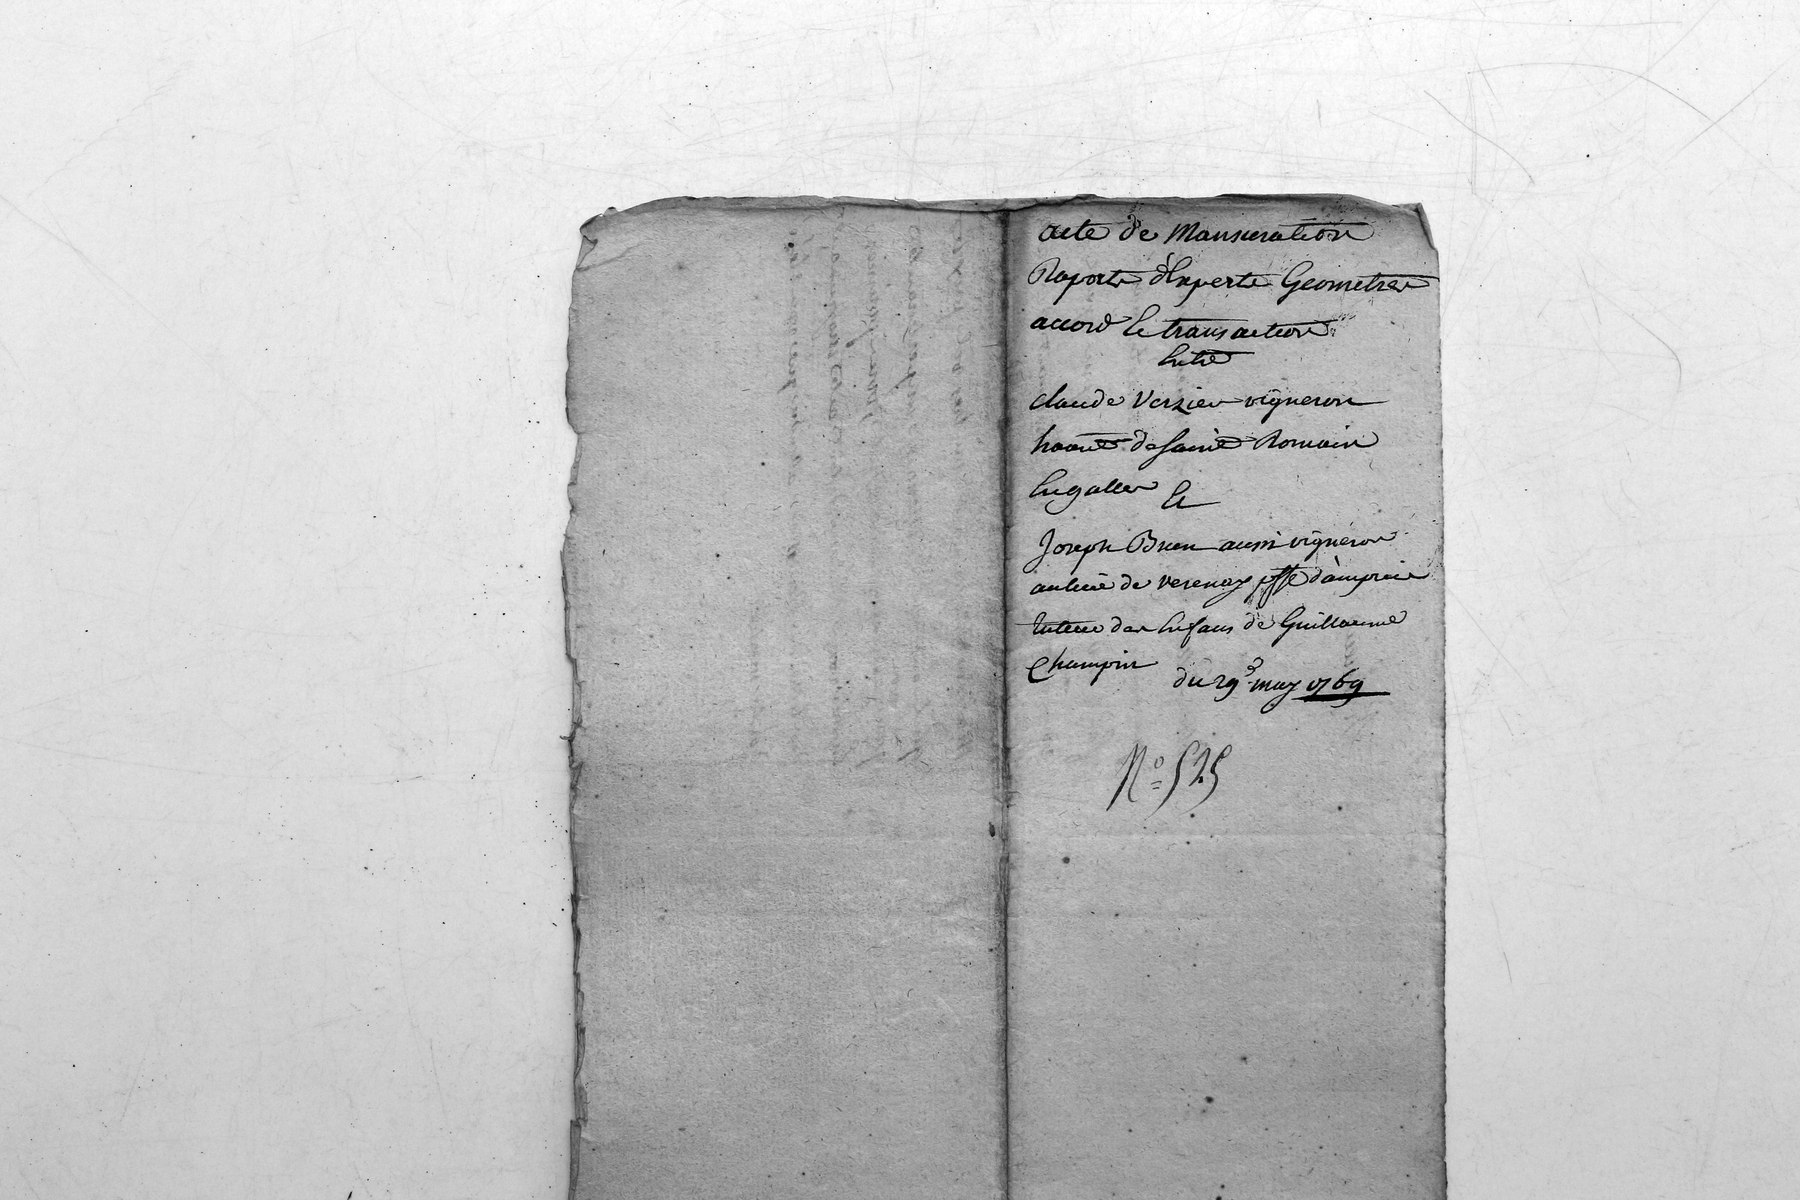 acte de Mansuration
Raports d'Experts Geometres
accord Et transaction
Entre
claude Verzier vigneron
haant de saint Romain
En galles Et
Joseph Bruu aussi vigneron
au lieu de verenay psse d'ampuis
tuteur des Enfans de Guillaume
Champin
du 29e may 1769
No 525